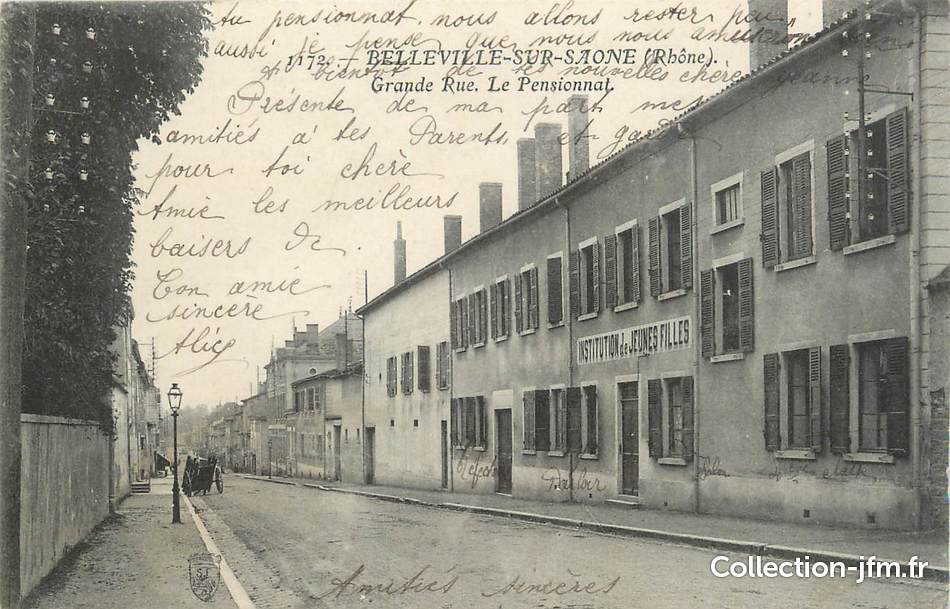 tu pensionnat, nous allons rester pour
aussi je pense que nous nous amuserons bien
et bientôt de tes nouvelles chère Jeanne
1172. — BELLEVILLE-SUR-SAONE (Rhône).
Grande Rue. Le Pensionnat.
Présente de ma part mes
amitiés à tes Parents, et
pour toi chère
Amie les meilleurs
baisers de
Ton amie
sincère
Alice
INSTITUTION de JEUNES FILLES
Parloir
Amitiés sincères
Collection-jfm.fr